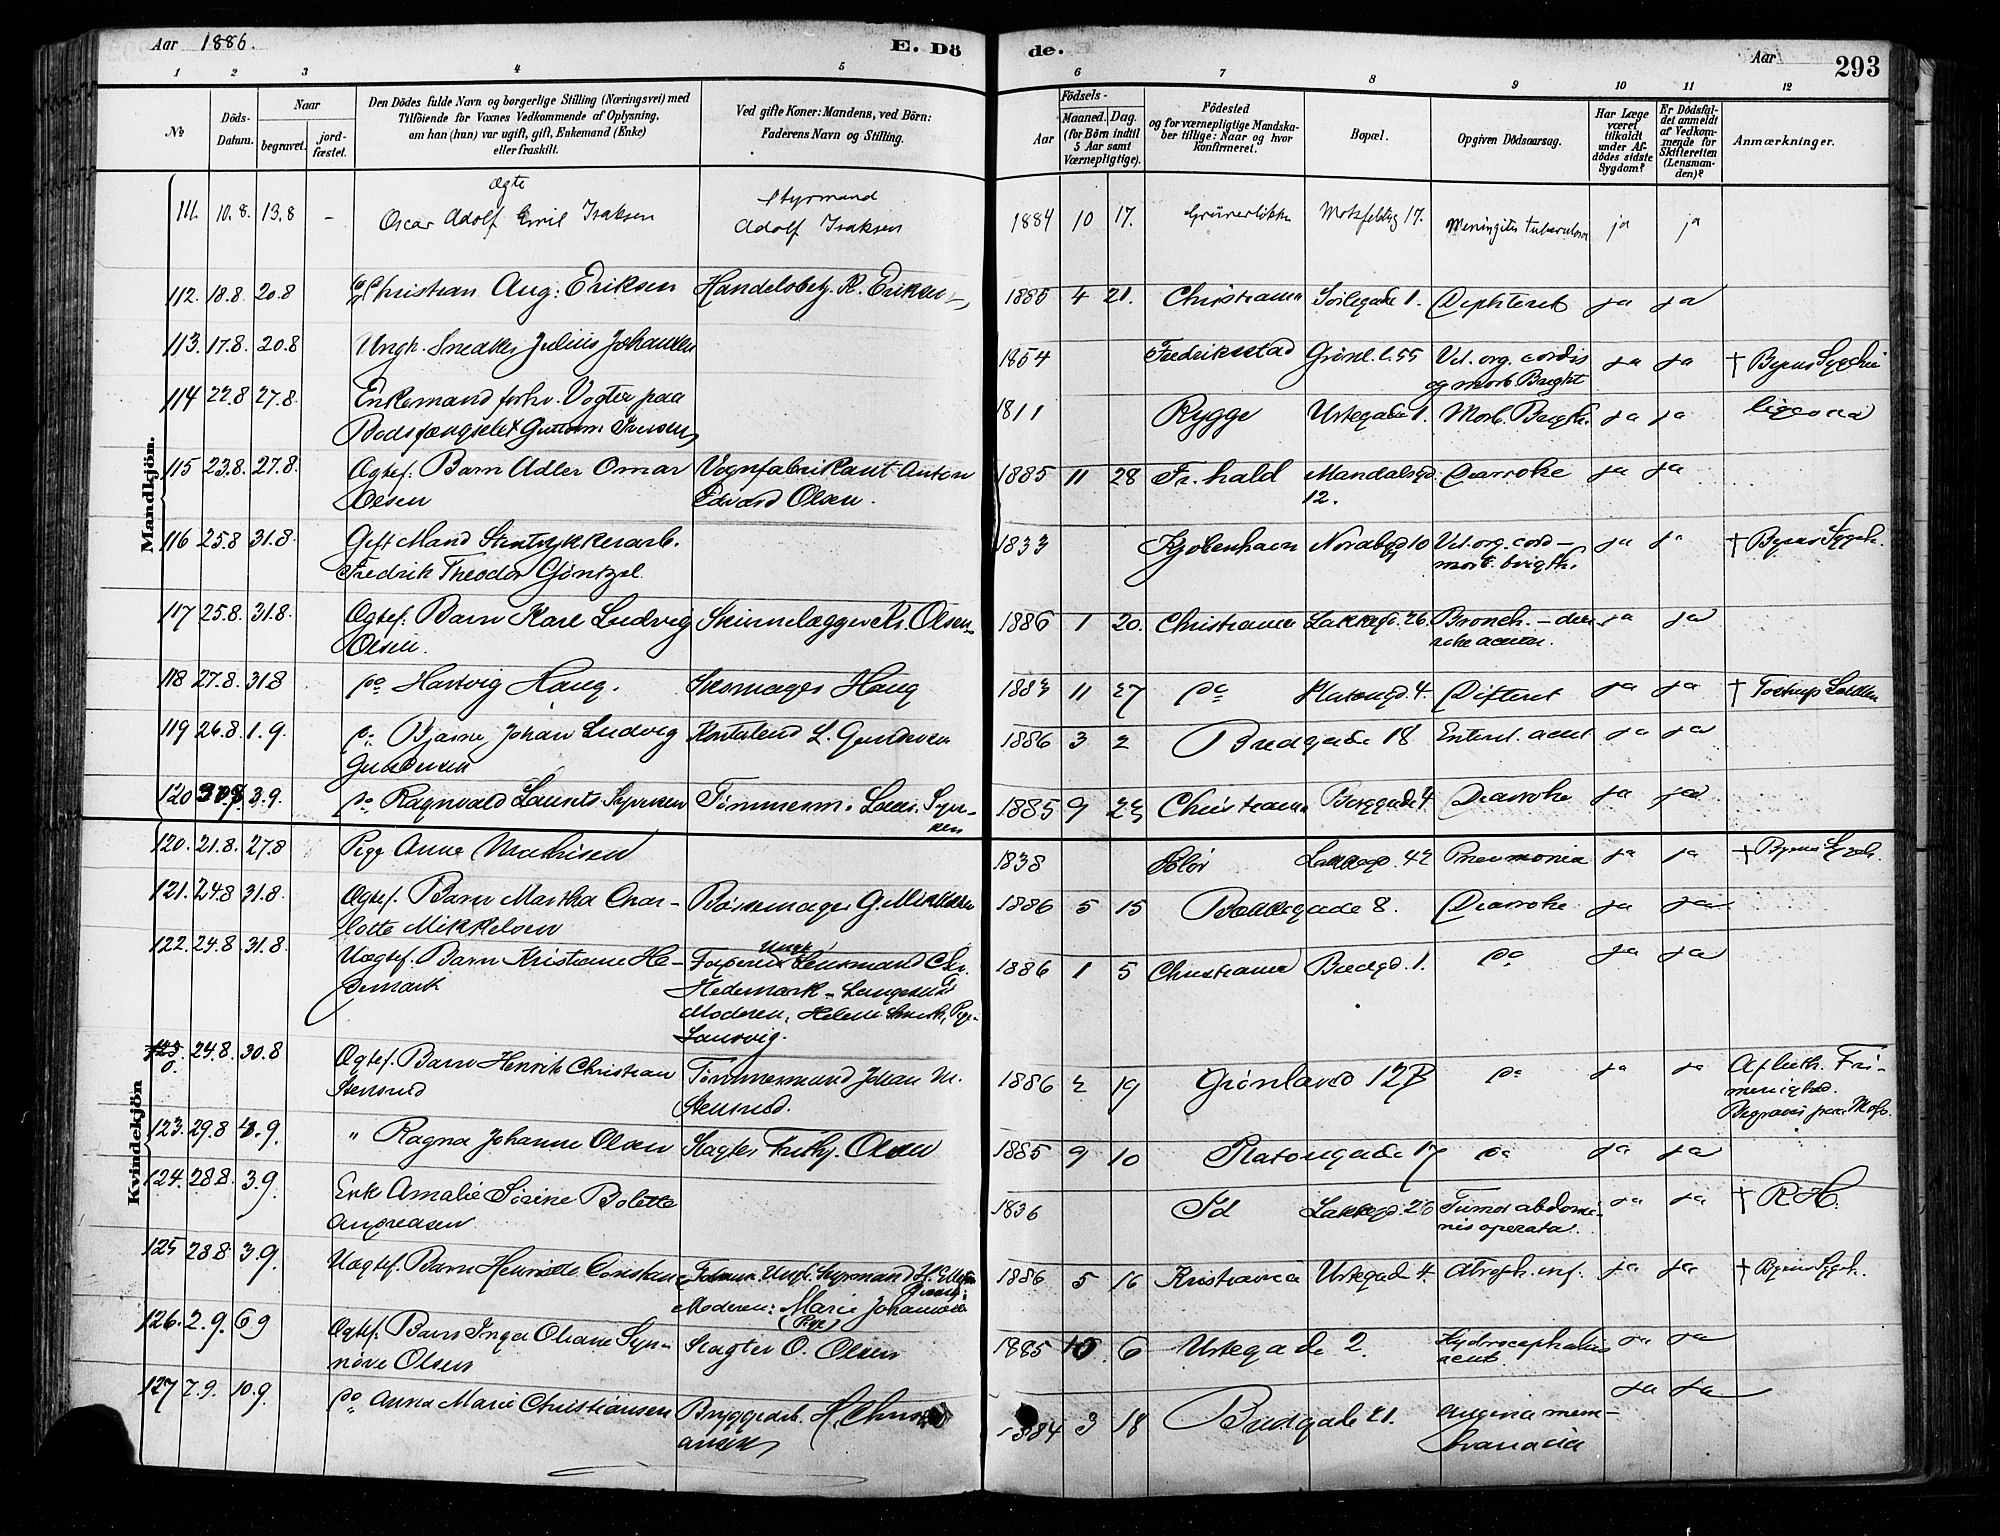 Aar 1886.
E. Dö
de.
Aar
293
1 2 3 4 5 6 7 8 9 10 11 12
No
Döds-
Datum.
Naar
begravet.
jord-
fæstet.
Den Dödes fulde Navn og borgerlige Stilling (Næringsvei) med
Tilföiende for Voxnes Vedkommende af Oplysning,
om han (hun) var ugift, gift, Enkemand (Enke)
eller fraskilt.
Ved gifte Koner: Mandens, ved Börn:
Faderens Navn og Stilling.
Födsels-
Aar
Maaned.
Dag.
(for Börn indtil
5 Aar samt
Værnepligtige).
Födested
og for værnepligtige Mandska-
ber tillige: Naar og hvor
konfirmeret.
Bopæl.
Opgiven Dödsaarsag.
Har Læge
været
tilkaldt
under Af-
dödes sidste
Sygdom?
Er Dödsfal-
det anmeldt
af Vedkom-
mende for
Skifteretten
(Lensman-
den)?
Anmærkninger.
Mandkjön.
111. 10.8. 13.8 - Ægte Oscar Adolf Emil Isaksen Styrmand Adolf Isaksen 1884 10 17. Grünerløkken 17. Meningitis tuberculosa ja ja
112. 18.8. 20.8 Christian Aug: Eriksen Handelsbetj. K. Eriksen 1885 4 21. Christiania Sørlegade 1. Diphterit ja ja
113. 17.8. 20.8 Ungk. Snedker Julius Johansen 1854 Fredriksstad Grønl. l. 55 Vit. org. cordis
og morb. Bright ja ja † Byens Sygehus
114 22.8 27.8. Enkemand forhv. Vogter paa
Bodsfængselet Guttorm Iversen 1811 Rygge Urtegade 1. Morb. Brigth. ja ja
115 23.8. 27.8. Ægtef. Barn Adler Omar
Olsen Vognfabrikant Anton
Edvard Olsen. 1885 11 28 Fr.hald Mandalsgd.
12. Diarrohe ja ja
116 25.8 31.8. Gift Mand Stentrykkerarb.
Fredrik Theodor Gjöntzel. 1833 Kjøbenhavn Norabgd 10 Vit. org. cord-
morb. brigth. ja ja † Byens Sygeh.
117 25.8. 31.8. Ægtef. Barn Karl Ludvig
Olsen. Skinnelægger Kr. Olsen 1886 1 20. Christiania Lakkegd. 26. Bronch. ja ja
118 27.8. 31.8 do Hartvig Haug. Skomager Haug 1883 11 27 do Platougd. 4. Difterit ja ja † Tostrup
119 26.8. 1.9. do Bjarne Johan Ludvig
Gundersen Kontorbud L. Gundersen 1886 3 2 Bredgade 18 Enterit. acut ja ja
120 30.8 3.9. do Ragnvald Laurits Syversen Tømmerm. Laur. Syver-
sen 1885 9 23 Christiania Borggade 4 Diarrohe ja ja
Kvindekjön
120. 21.8. 27.8 Pige Anne Mathisen 1838 Solør Lakkegd. 42 Pneumonia ja ja † Byens Sygeh.
121. 24.8 31.8. Ægtef. Barn Martha Char-
lotte Mikkelsen Børstemager G. Mikkelsen 1886 5 15 Bakkegade 8. Diarrohe ja ja
122. 24.8 31.8. Uægtef. Barn Kristiane He-
demark Faderen Ungk. Styrmand Chr.
Hedemark - Langesund
Moderen: Helene Smith, Pige
Laurvig. 1886 1 5 Christiania Bredgd. 1. do ja ja
123. 24.8. 30.8 Ægtef. Barn Henrik Christian
Stensrud Tømmermand Johan M.
Stensrud. 1886 2 19 Grønland 12B do ja ja Af luth. Fri-
menighed.
Begravet paa Mos.
123. 29.8 4.9. " Ragna Johanne Olsen Slagter Frithj. Olsen 1885 9 10 Platougade 17 do ja ja
124. 28.8. 3.9. Enk Amalie Sørine Bolette
Andreasen 1836 Id Lakkegd. 26 Tumor abdomi-
nis operata. ja ja † R.H.
125 28.8. 3.9. Uægtef. Barn Henriette Constanse Faderen Ungk. Styrmand
Moderen: Marie Johannesen
(Pige) 1886 5 16 Kristiania Urtegade 4. Atroph. inf. ja ja † Byens Sygeh.
126. 2.9. 6.9 Ægtef. Barn Inga Oliane Syn-
nøve Olsen Slagter O. Olsen 1885 10 6 Urtegade 2. Hydrocephalus
acut. ja ja
127 7.9. 10.9. do Anna Marie Christiansen Bryggeriarb. H. Christi-
ansen 1884 3 18 Bredgade 21. Angina mem-
branacia ja ja